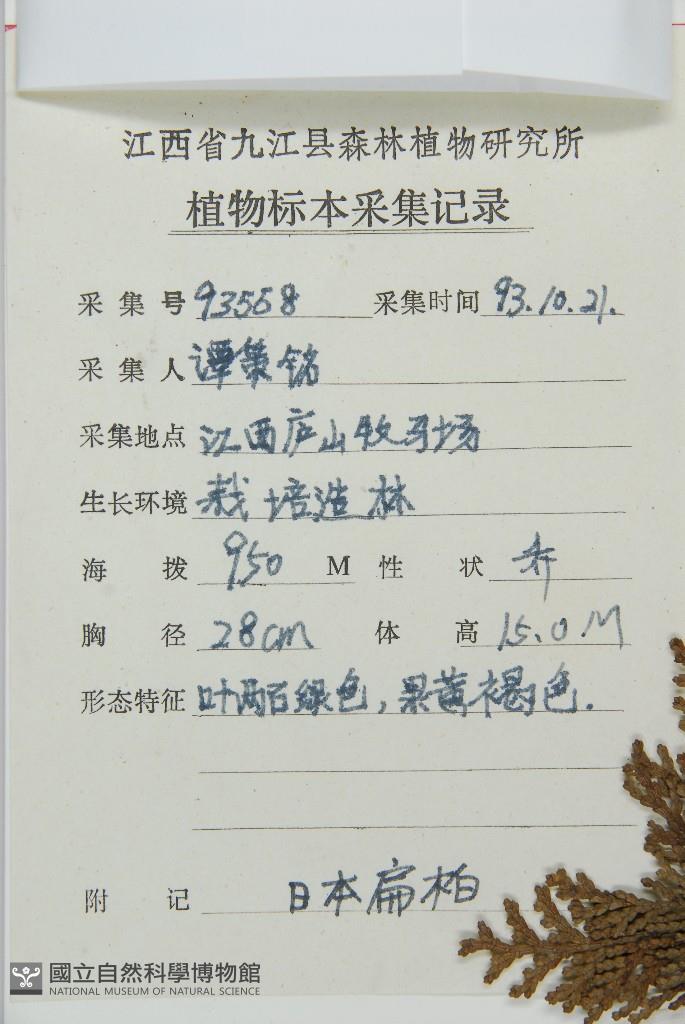 江西省九江县森林植物研究所
植物标本采集记录
采集号 93568 采集时间 93.10.21.
采集人 谭策铭
采集地点 江西庐山牧马场
生长环境 栽培造林
海拨 950 M 性状 乔
胸径 28cm 体高 15.0M
形态特征 叶两面绿色,果黄褐色.
附记 日本扁柏
國立自然科學博物館
NATIONAL MUSEUM OF NATURAL SCIENCE